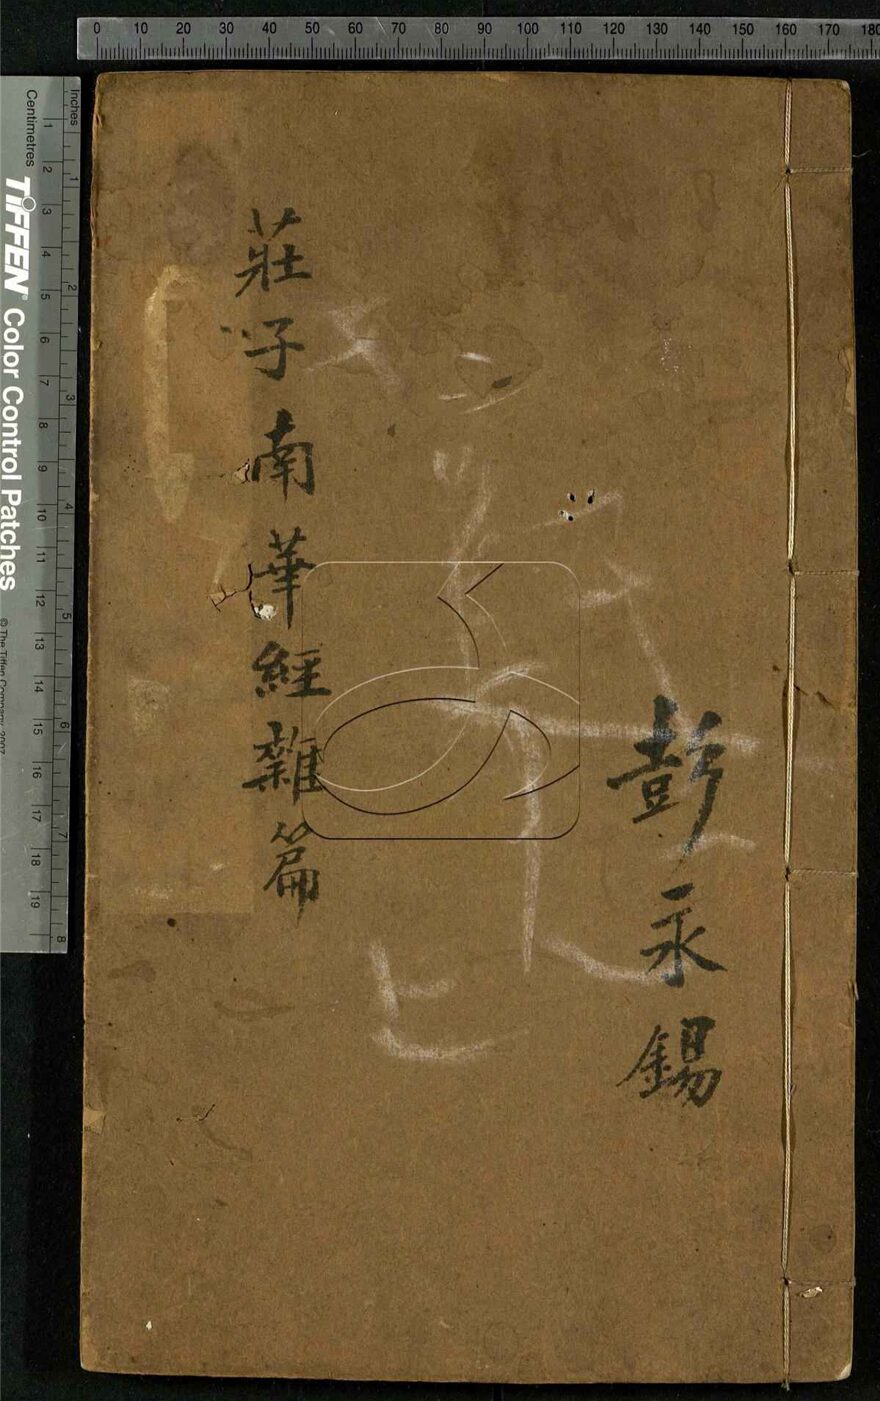 0 10 20 30 40 50 60 70 80 90 100 110 120 130 140 150 160 170 180
彭永錫
莊子南華經雜篇
Inches
1 2 3 4 5 6 7 8
Centimetres
1 2 3 4 5 6 7 8 9 10 11 12 13 14 15 16 17 18 19
TIFFEN® Color Control Patches
© The Tiffen Company, 2007